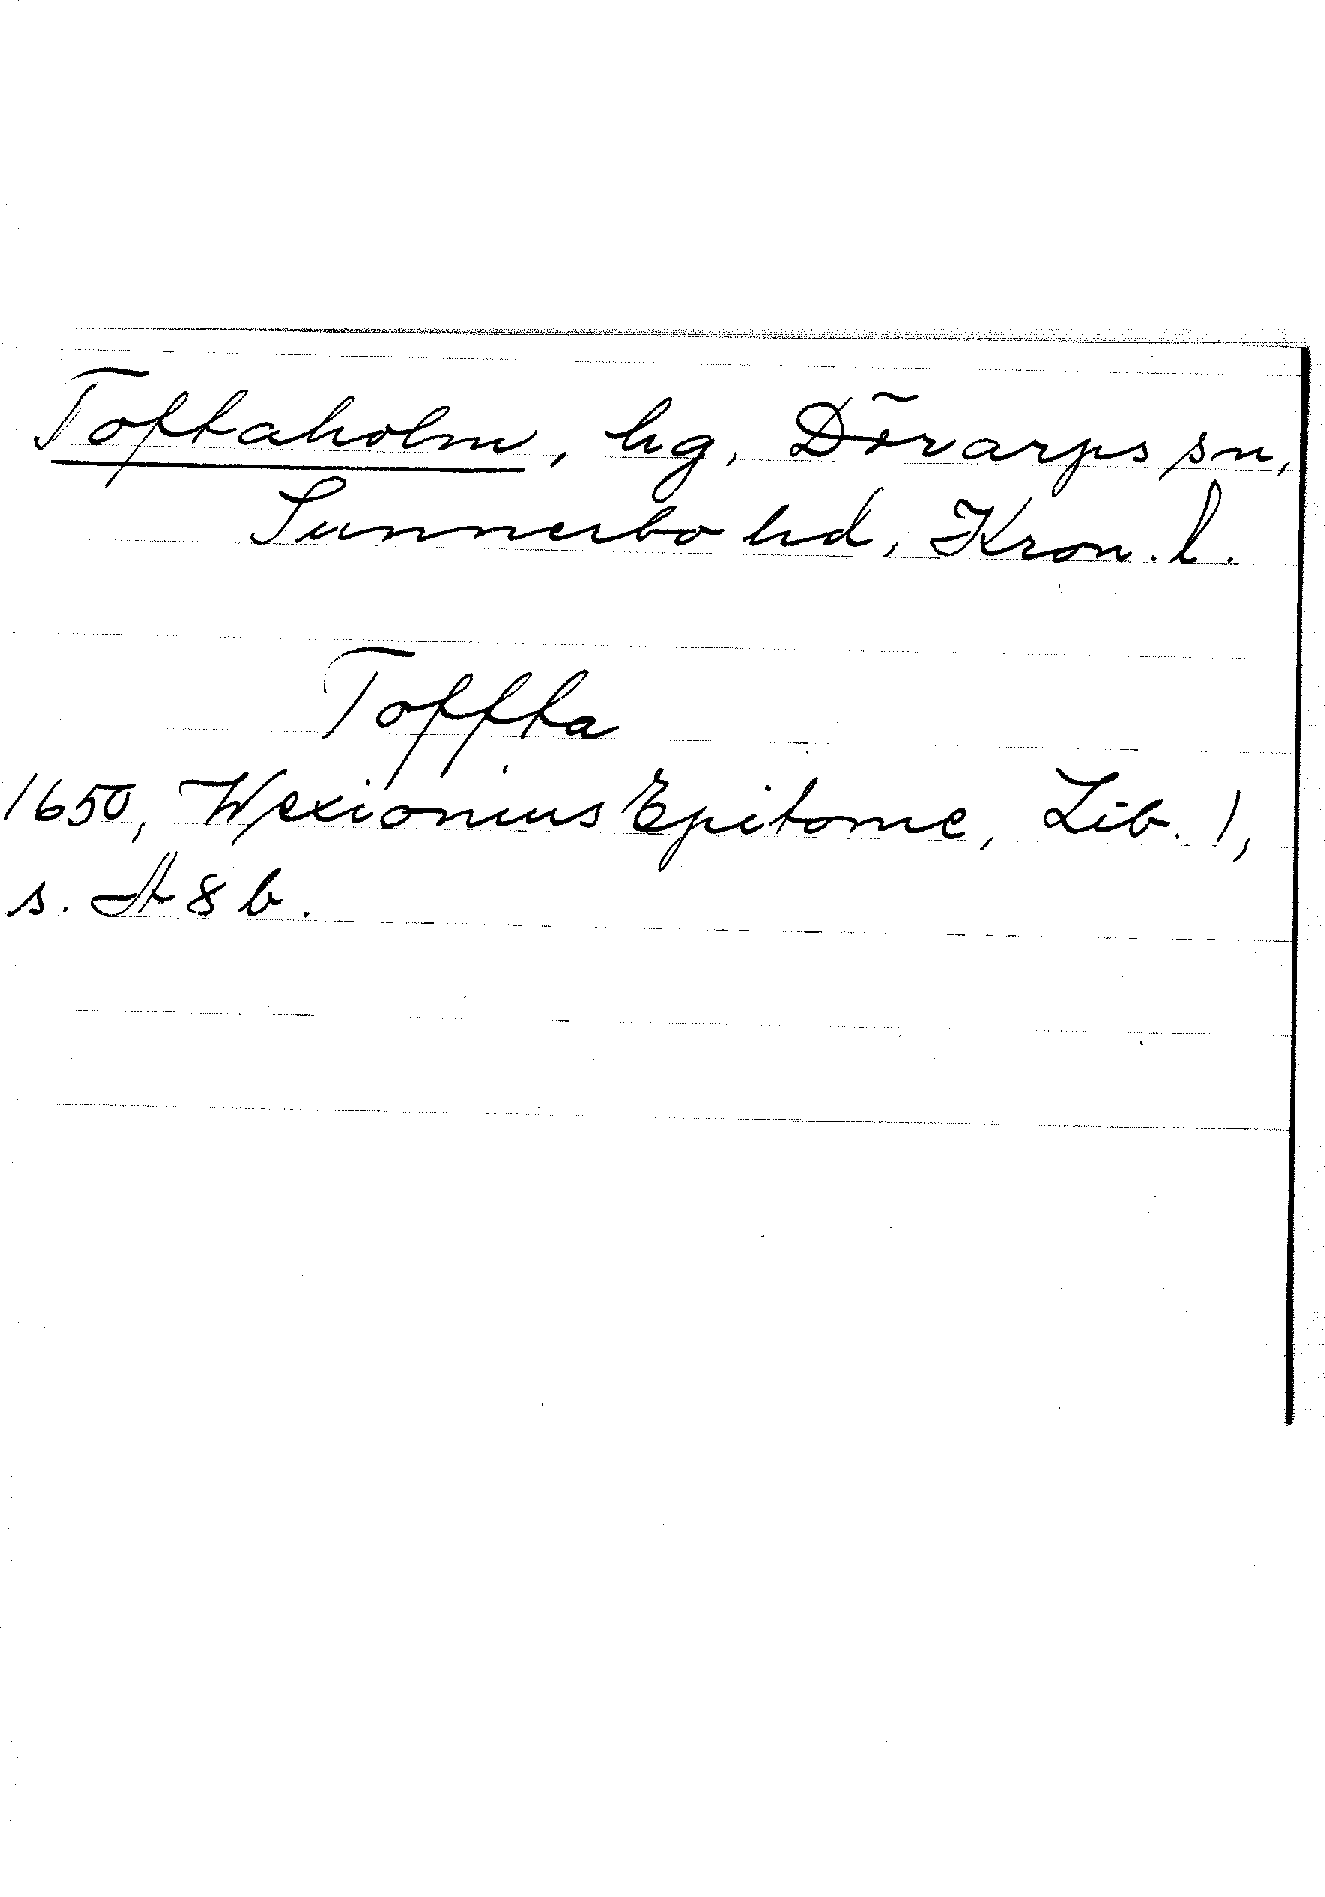 Toftaholm, hg, Dörarps sn,
Sunnerbo hd, Kron. l.
Toffta
1650, Wexionius Epitome, Lib. 1,
s. A 8 b.